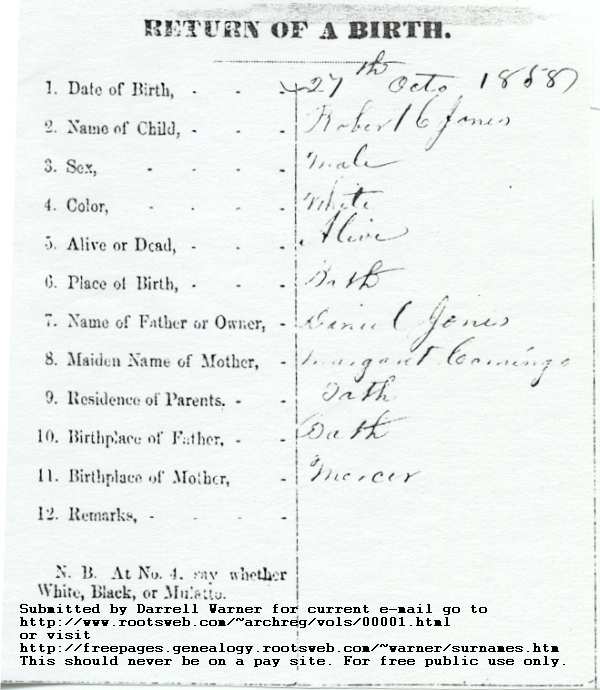 RETURN OF A BIRTH.
1. Date of Birth, - - - 27th Octo 1858
2. Name of Child, - - - Robert C Jones
3. Sex, - - - - Male
4. Color, - - - - White
5. Alive or Dead, - - - Alive
6. Place of Birth, - - - Bath
7. Name of Father or Owner, - Daniel Jones
8. Maiden Name of Mother, - Margaret Comingo
9. Residence of Parents. - - Bath
10. Birthplace of Father, - - Bath
11. Birthplace of Mother, - Mercer
12. Remarks, - - - -
N. B. At No. 4. say whether
White, Black, or Mulatto.
Submitted by Darrell Warner for current e-mail go to
http://www.rootsweb.com/~archreg/vols/00001.html
or visit
http://freepages.genealogy.rootsweb.com/~warner/surnames.htm
This should never be on a pay site. For free public use only.